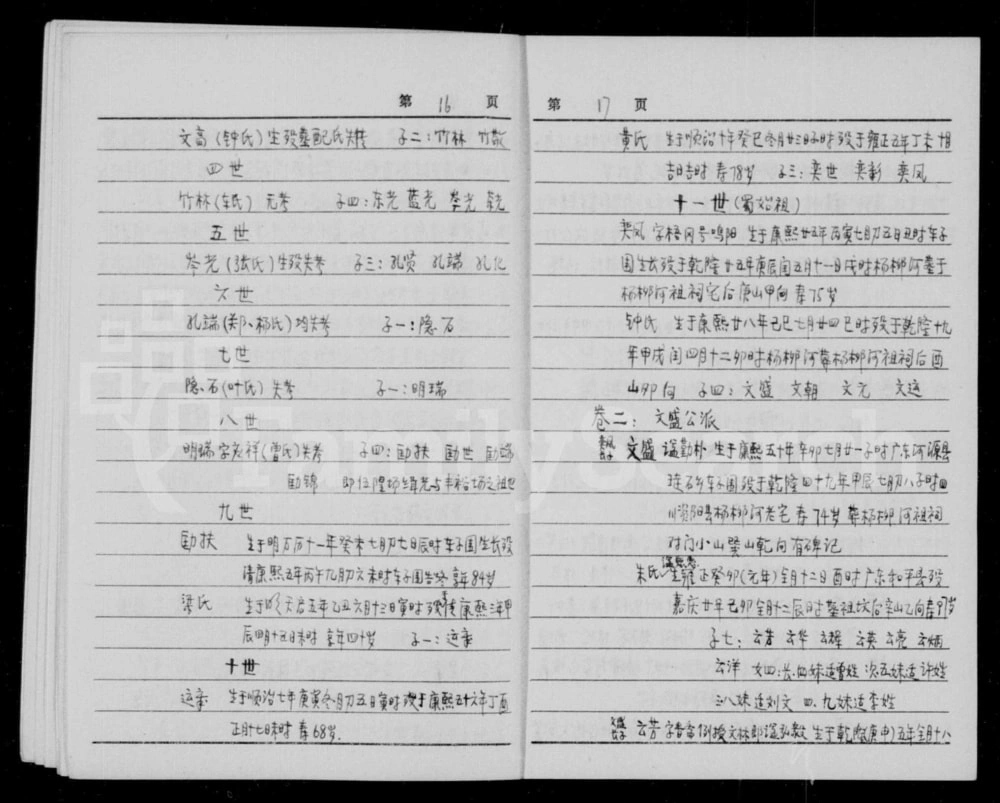 第 16 页
文高 (钟氏) 生殁葬配氏失考 子二：竹林 竹敬
四世
竹林 () 无考 子四：东光 蓝光 岑光
五世
岑光 (张氏) 生殁失考 子三：孔贤 孔端 孔化
六世
孔端 (郑、杨氏) 均失考 子一：隐石
七世
隐石 (叶氏) 失考 子一：明瑞
八世
明瑞 字 (曾氏) 失考 子四：励扶 励世
励锦
九世
励扶 生于明万历十一年癸未七月初七日辰时车子围生长殁
清康熙五年丙午九月初六未时车子围 享年84岁
梁氏 生于明天启五年乙丑六月十三日寅时殁 康熙三年甲
辰四月十五日未时 享年四十岁 子一：运
十世
运 生于顺治七年庚寅冬月初五日寅时殁于康熙五十六年丁酉
正月十七日未时 寿68岁.
第 17 页
黄氏 生于顺治十年癸巳冬月廿三日子时殁于雍正五年丁未十月
吉日吉时 寿78岁 子三：奕世 奕彰 奕凤
十一世 (蜀始祖)
奕凤 字梧冈号鸣阳 生于康熙廿五年丙寅七月初五日丑时车子
围生长殁于乾隆廿五年庚辰闰五月十一日戌时杨柳河葬于
杨柳河祖祠宅后庚山甲向 寿75岁
钟氏 生于康熙廿八年己巳七月廿四巳时殁于乾隆十九
年甲戌闰四月十二卯时杨柳河葬杨柳河祖祠后酉
山卯向 子四：文盛 文朝 文元 文运
卷二：文盛公派
文盛 谥勤朴 生于康熙五十年辛卯七月廿一子时广东河源县
车子围殁于乾隆四十九年甲辰七月初八子时四
川资阳县杨柳河老宅 寿74岁 葬杨柳河祖祠
对门小山巽山乾向有碑记
朱氏 生雍正癸卯(元年)全月十二日酉时广东和平县殁
嘉庆廿年己卯全月十二辰时葬祖坟后辛山乙向寿97岁
子七：云芳 云华 云耀 云英 云亮 云炳
云洋 女四：长、四妹适曾姓 次、五妹适许姓
三八妹适刘文 四、九妹适李姓
云芳 字 例授文林郎谥弘毅 生于乾隆(庚申)五年全月十八